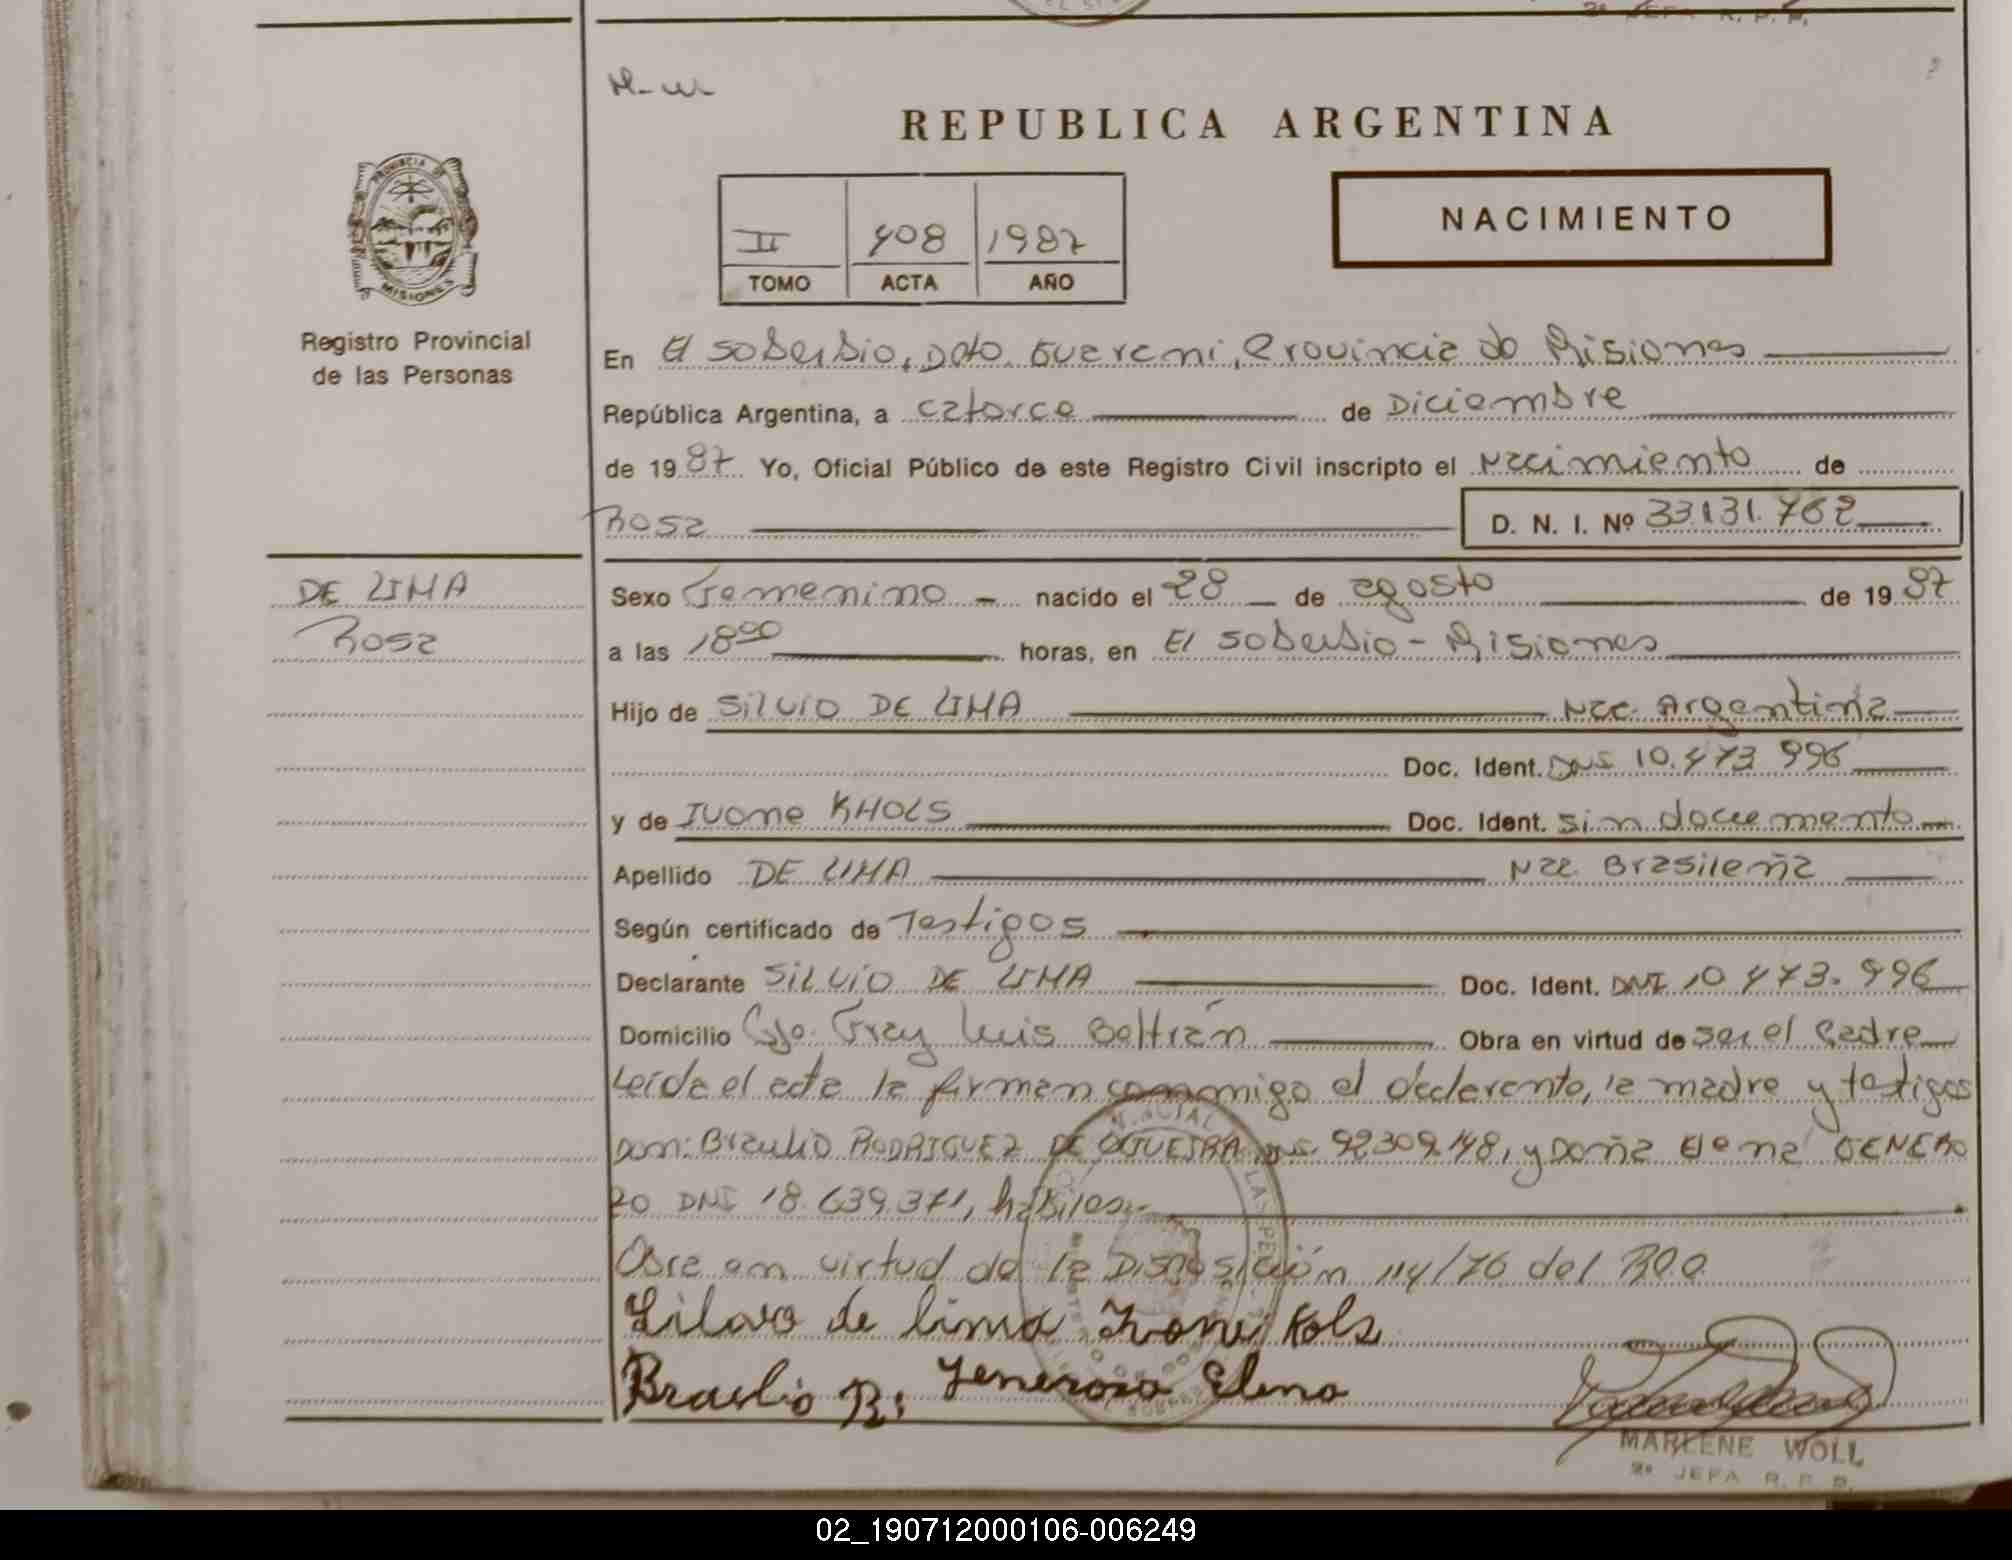 M-W
REPUBLICA ARGENTINA
PROVINCIA DE
MISIONES
Registro Provincial
de las Personas
II 408 1987
TOMO ACTA AÑO
NACIMIENTO
En El Soberbio, Dpto. Guarani, Provincia de Misiones
República Argentina, a catorce de Diciembre
de 1987 Yo, Oficial Público de este Registro Civil inscripto el Nacimiento de
Rosa D. N. I. Nº 33.131.762
DE LIMA
Rosa
Sexo Femenino - nacido el 28 de agosto de 1987
a las 18 00 horas, en El Soberbio - Misiones
Hijo de Silvio DE LIMA Nac. Argentina
Doc. Ident. DNI 10.473.996
y de Ivone KHOLS Doc. Ident. sin documento
Apellido DE LIMA Nac. Brasileña
Según certificado de Testigos
Declarante SILVIO DE LIMA Doc. Ident. DNI 10.473.996
Domicilio Cjo. Fray Luis Beltrán Obra en virtud de ser el Padre
Leída el acta la firman conmigo el declarante, la madre y testigos
Don: Braulio RODRIGUEZ DE OGUEIRA 92309.148, y Doña Elena GENERO
ZO DNI 18.639.371, hábiles.-
Obra en virtud de la Disposición 114/76 del
Silvio de lima Ivone Kols
Braulio R. Generosa Elena
MARLENE WOLL
2º JEFA R. P. P.
02_190712000106-006249